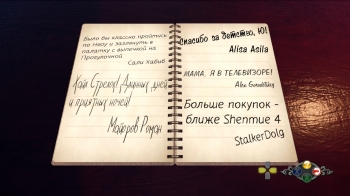 Было бы классно пройтись
по Нагу и заглянуть в
палатку с выпечкой на
Прогулочной
Сали Хабиб
Хай Стрелок! Длинных дней
и приятных ночей!
Майоров Роман
Спасибо за детство, Ю!
Alisa Asila
МАМА, Я В ТЕЛЕВИЗОРЕ!
Alex
Больше покупок -
ближе Shenmue 4
StalkerDolg